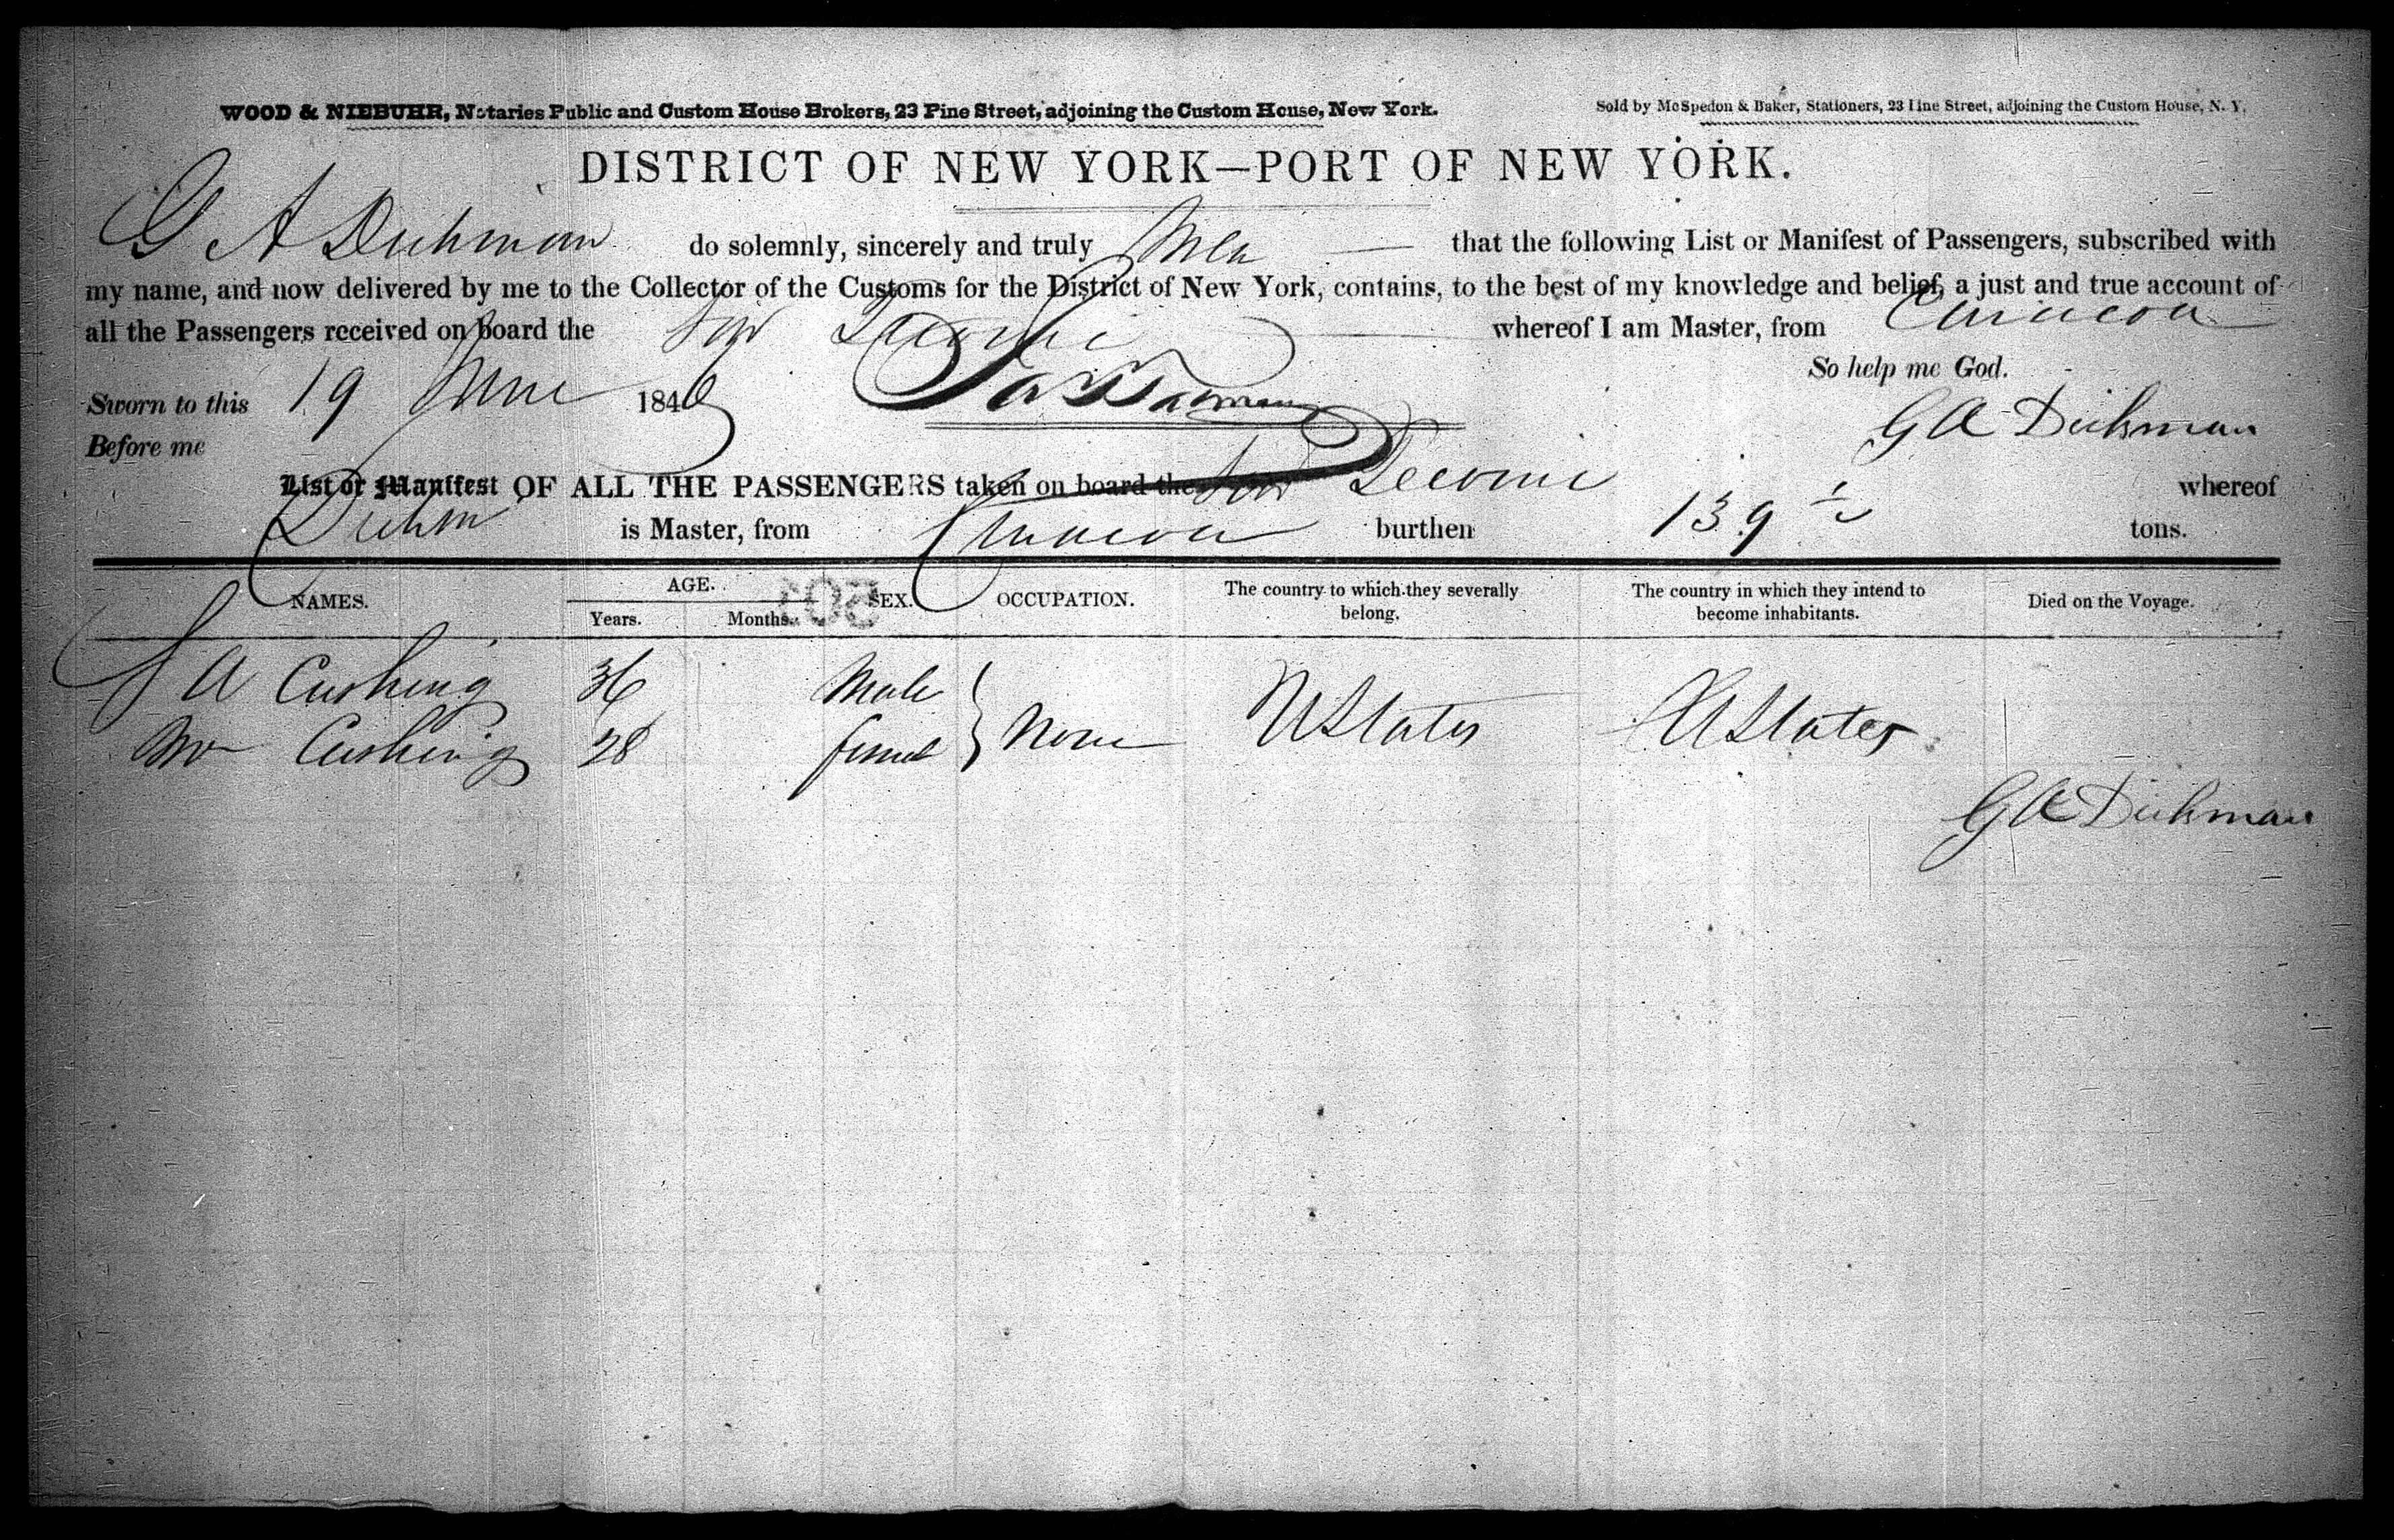 WOOD & NIEBUHR, Notaries Public and Custom House Brokers, 23 Pine Street, adjoining the Custom House, New York.
Sold by McSpedon & Baker, Stationers, 23 Pine Street, adjoining the Custom House, N. Y.
DISTRICT OF NEW YORK—PORT OF NEW YORK.
G A Dickman do solemnly, sincerely and truly that the following List or Manifest of Passengers, subscribed with
my name, and now delivered by me to the Collector of the Customs for the District of New York, contains, to the best of my knowledge and belief, a just and true account of
all the Passengers received on board the whereof I am Master, from Curacoa
So help me God.
Sworn to this 19 June 1846
G A Dickman
Before me
List or Manifest OF ALL THE PASSENGERS taken on board the whereof
is Master, from Curacoa burthen 139 tons.
NAMES. AGE. SEX. OCCUPATION. The country to which they severally belong. The country in which they intend to become inhabitants. Died on the Voyage.
Years. Months.
A Cushing 36 Male
None U States U States
Cushing 28 femal
G A Dickman